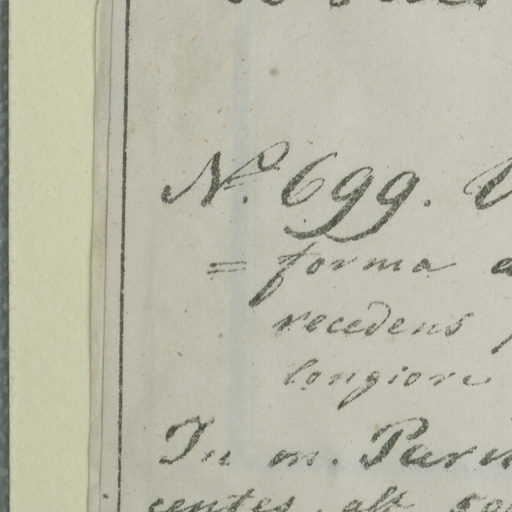 No. 699.
= forma
recedens
longiore
In m.
centes. alt.